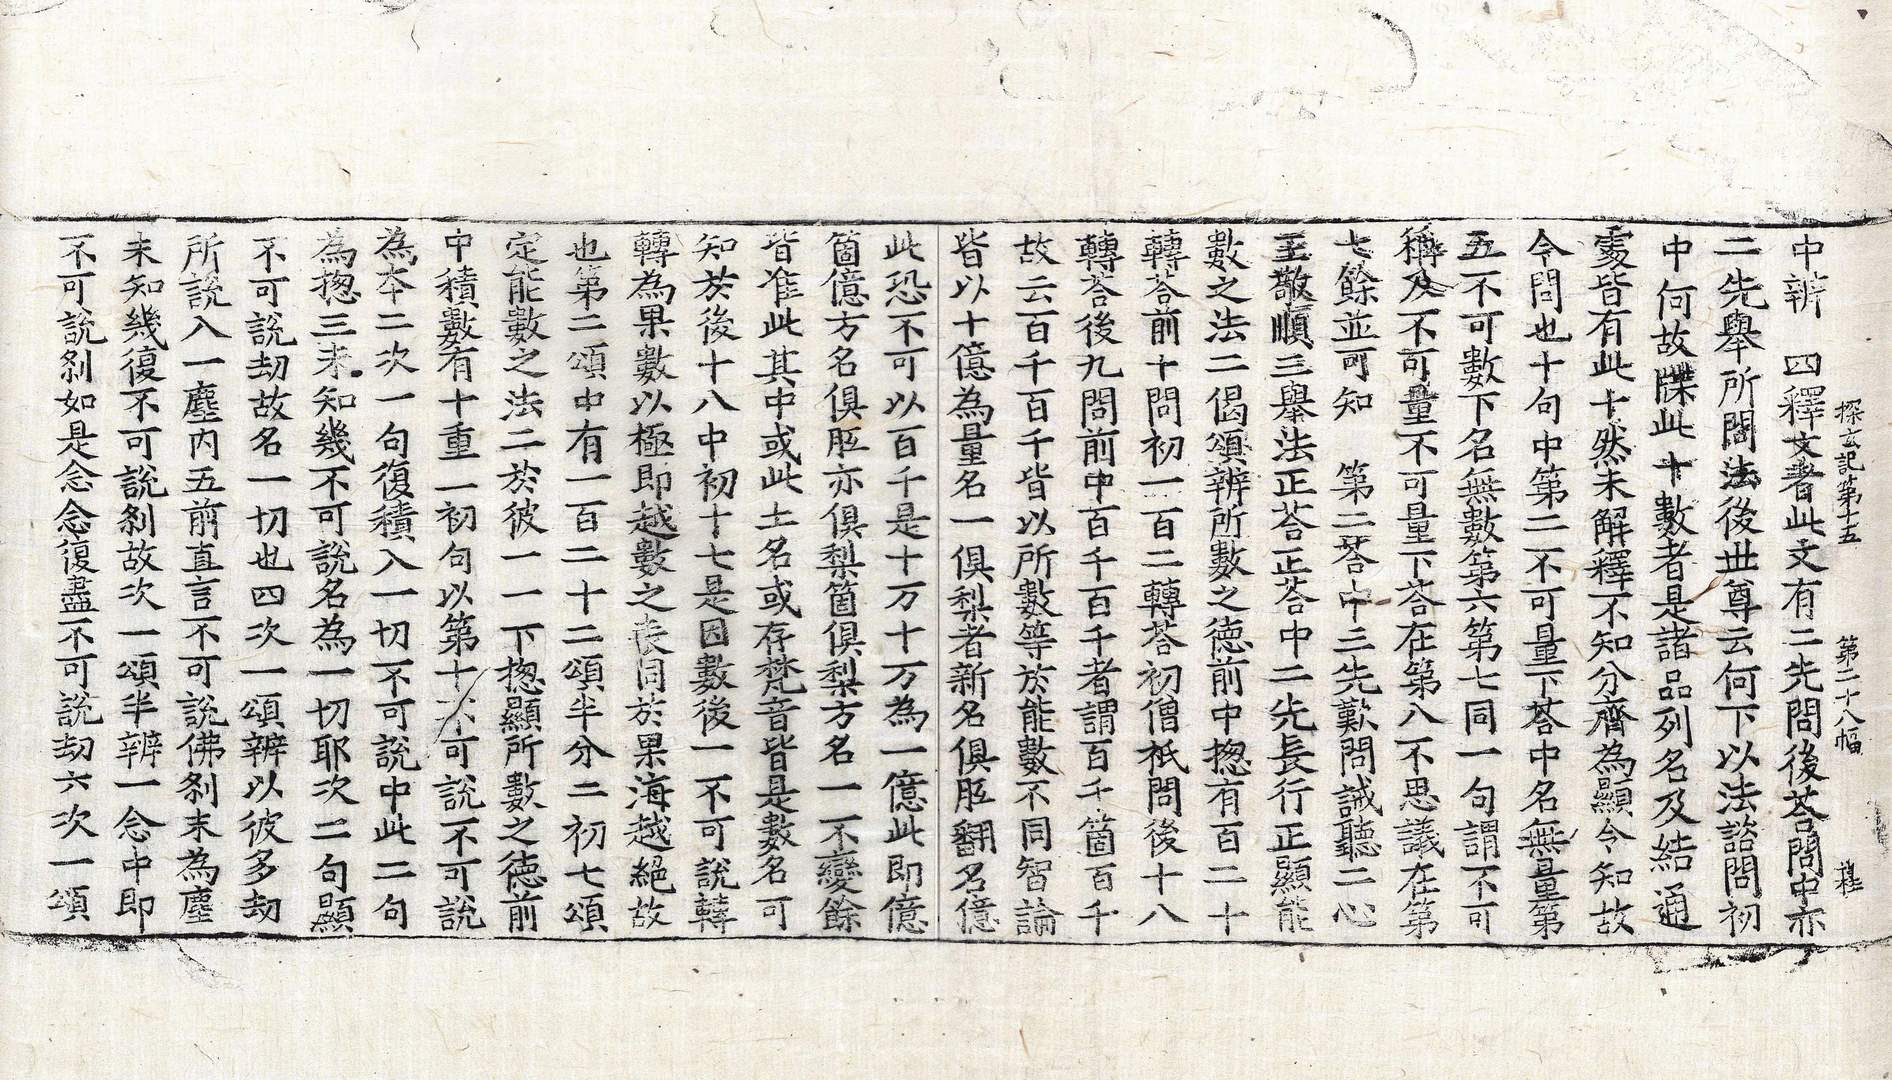 探玄記第十五 第二十八幅
中辨 四釋文者此文有二先問後荅問中亦
二先舉所閣法後世尊云何下以法諮問初
中何故牒此十數者是諸品列名及結通
處皆有此十然未解釋不知分齊為顯令知故
今問也十句中第二不可量下荅中名無量第
五不可數下名無數第六第七同一句謂不可
稱及不可量不可量下荅在第八不思議在第
七餘並可知 第二荅中三先歎問誡聽二心
王敬順三舉法正荅正荅中二先長行正顯能
數之法二偈頌辨所數之德前中揔有百二十
轉荅前十問初一百二轉荅初僧祇問後十八
轉荅後九問前中百千百千者謂百千箇百千
故云百千百千皆以所數等於能數不同智論
皆以十億為量名一俱梨者新名俱胝翻名億
此恐不可以百千是十万十万為一億此即億
箇億方名俱胝亦俱梨箇俱梨方名一不變餘
皆准此其中或此土名或存梵音皆是數名可
知於後十八中初十七是因數後一不可說轉
轉為果數以極即越數之喪同於果海越絕故
也第二頌中有一百二十二頌半分二初七頌
定能數之法二於彼一一下揔顯所數之德前
中積數有十重一初句以第十不可說不可說
為本二次一句復積入一切不可說中此二句
為揔三未知幾不可說名為一切耶次二句顯
不可說劫故名一切也四次一頌辨以彼多劫
所說入一塵内五前直言不可說佛剎末為塵
未知幾復不可說剎故次一頌半辨一念中即
不可說剎如是念念復盡不可說劫六次一頌